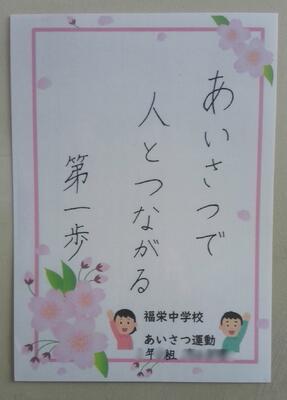 あいさつで
人とつながる
第一歩
福栄中学校
あいさつ運動
年 組